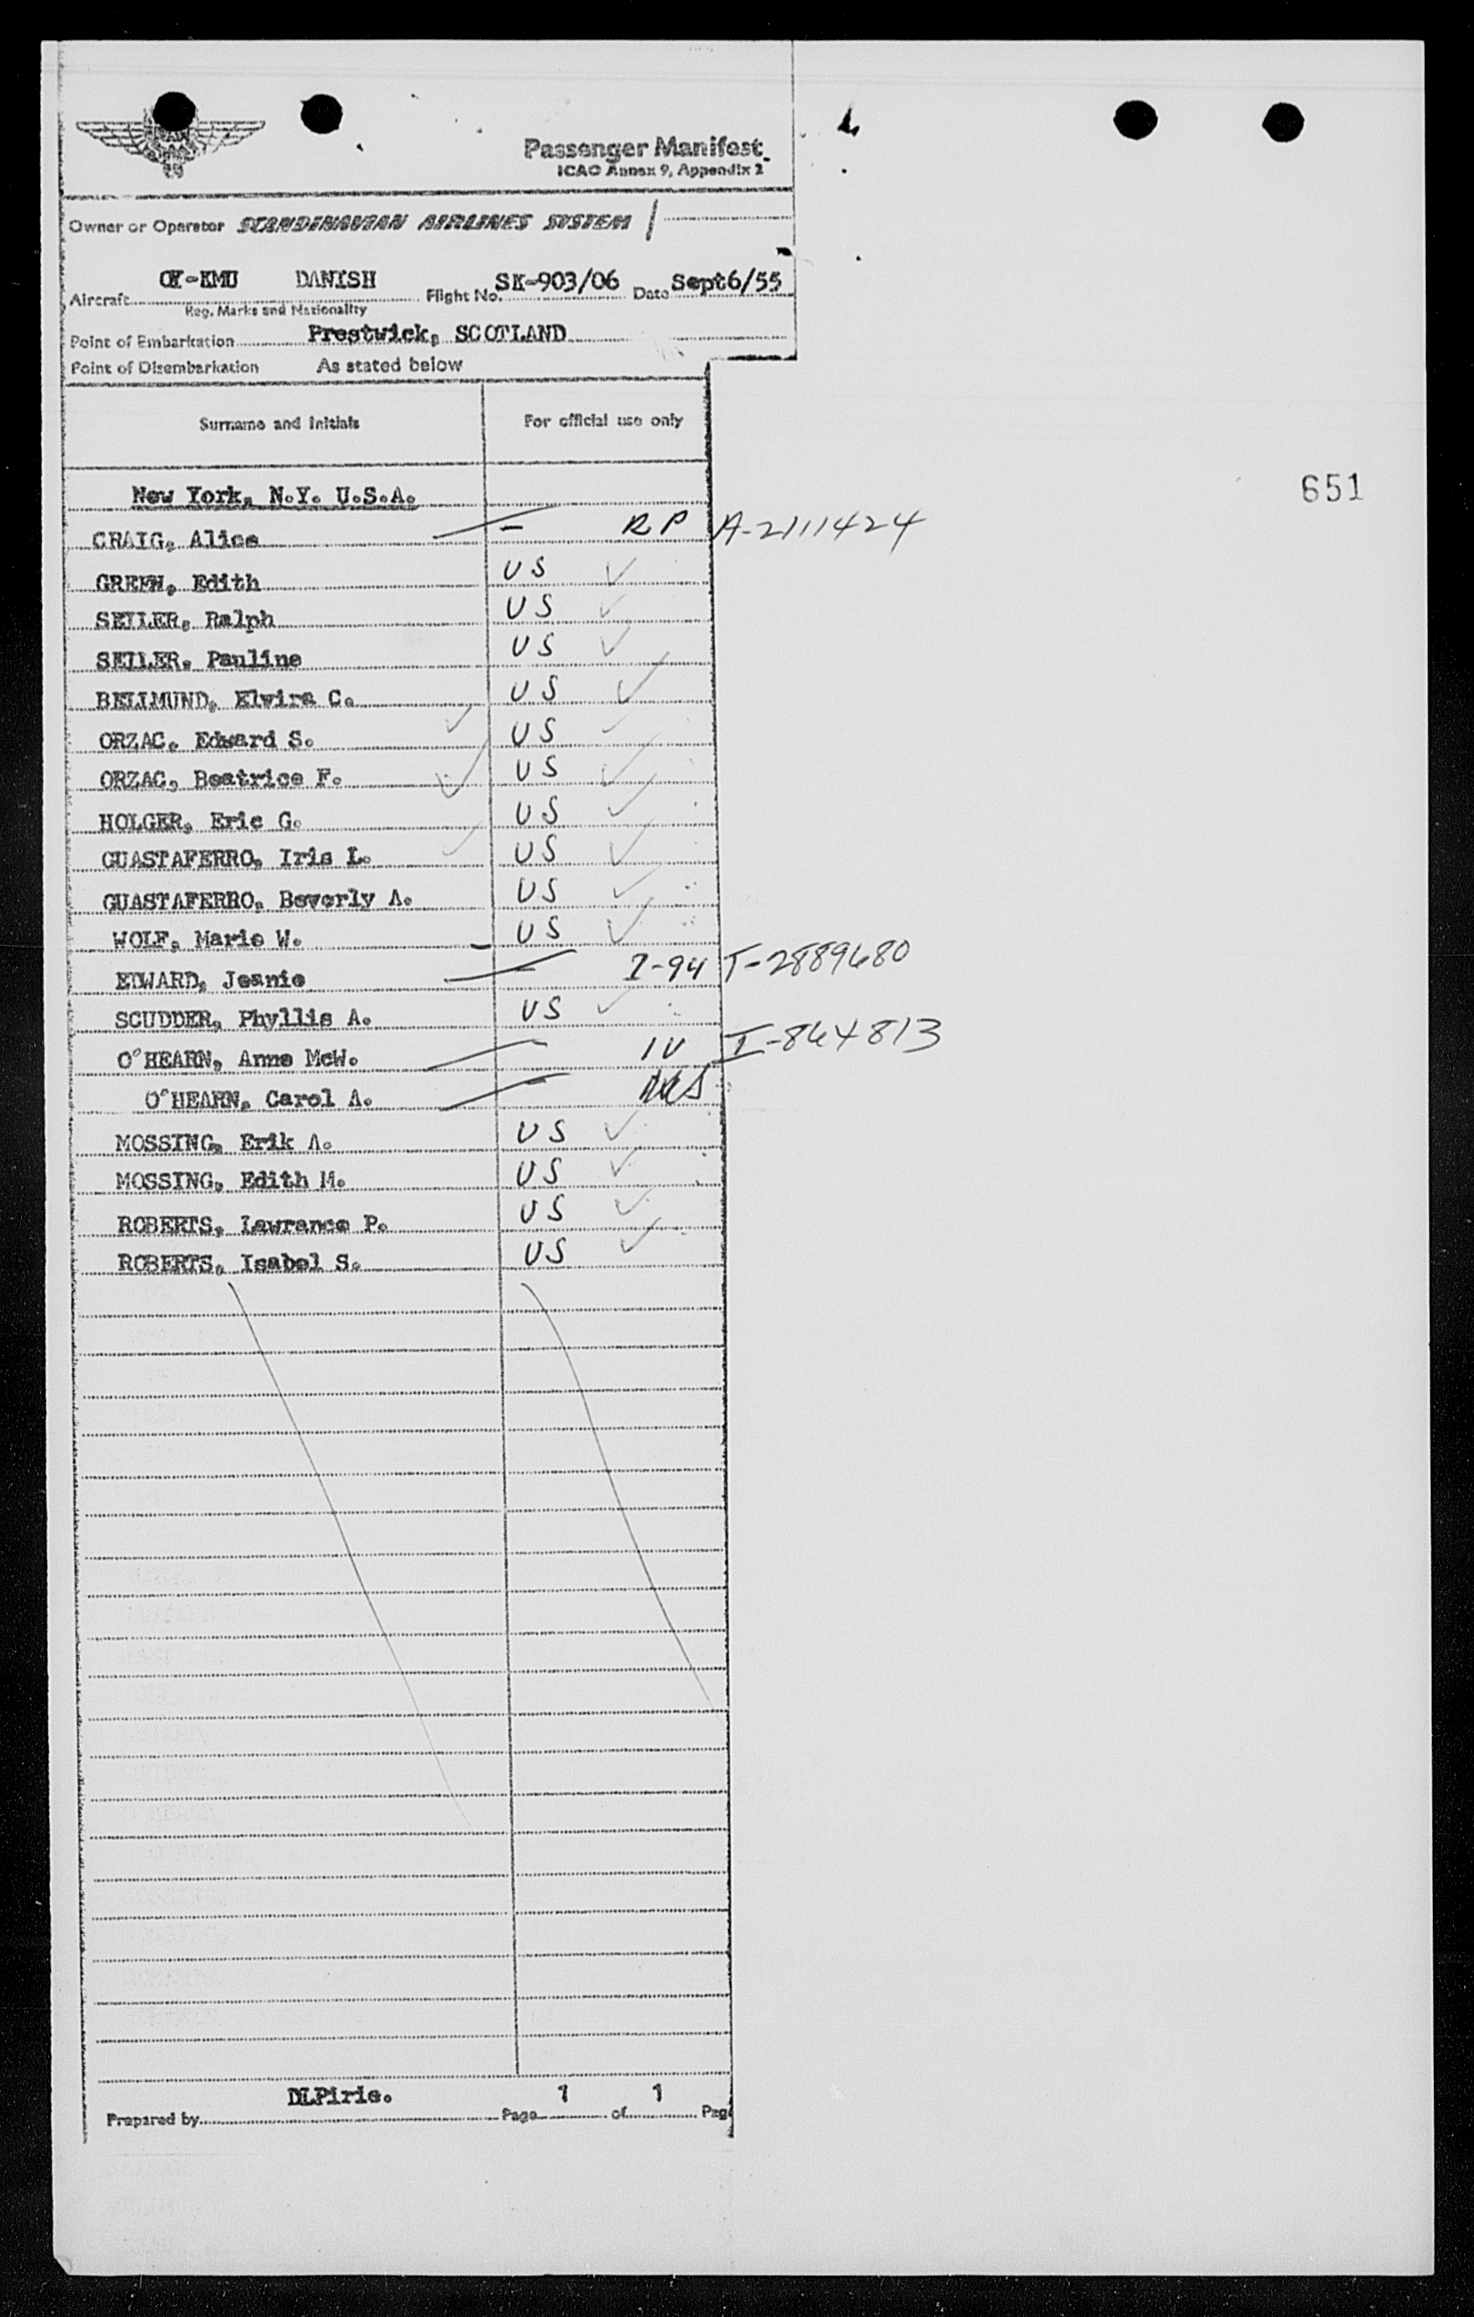 Passenger Manifest
ICAO Annex 9, Appendix 2
Owner or Operator SCANDINAVIAN AIRLINES SYSTEM
Aircraft OY-KMU DANISH Flight No. SK-903/06 Date Sept6/55
Reg. Marks and Nationality
Point of Embarkation Prestwick, SCOTLAND
Point of Disembarkation As stated below
Surname and Initials For official use only
651
New York, N.Y. U.S.A.
CRAIG, Alice - R P A-2111424
GREEN, Edith US
SEILER, Ralph US
SEILER, Pauline US
BELLMUND, Elvira C. US
ORZAC, Edward S. US
ORZAC, Beatrice F. US
HOLGER, Eric G. US
GUASTAFERRO, Iris L. US
GUASTAFERRO, Beverly A. US
WOLF, Marie W. US
EDWARD, Jeanie - I-94 T-2889680
SCUDDER, Phyllis A. US
O'HEARN, Anne McW. - IV I-864813
O'HEARN, Carol A. -
MOSSING, Erik A. US
MOSSING, Edith M. US
ROBERTS, Lawrance P. US
ROBERTS, Isabel S. US
Prepared by DLPirie. Page 1 of 1 Pag